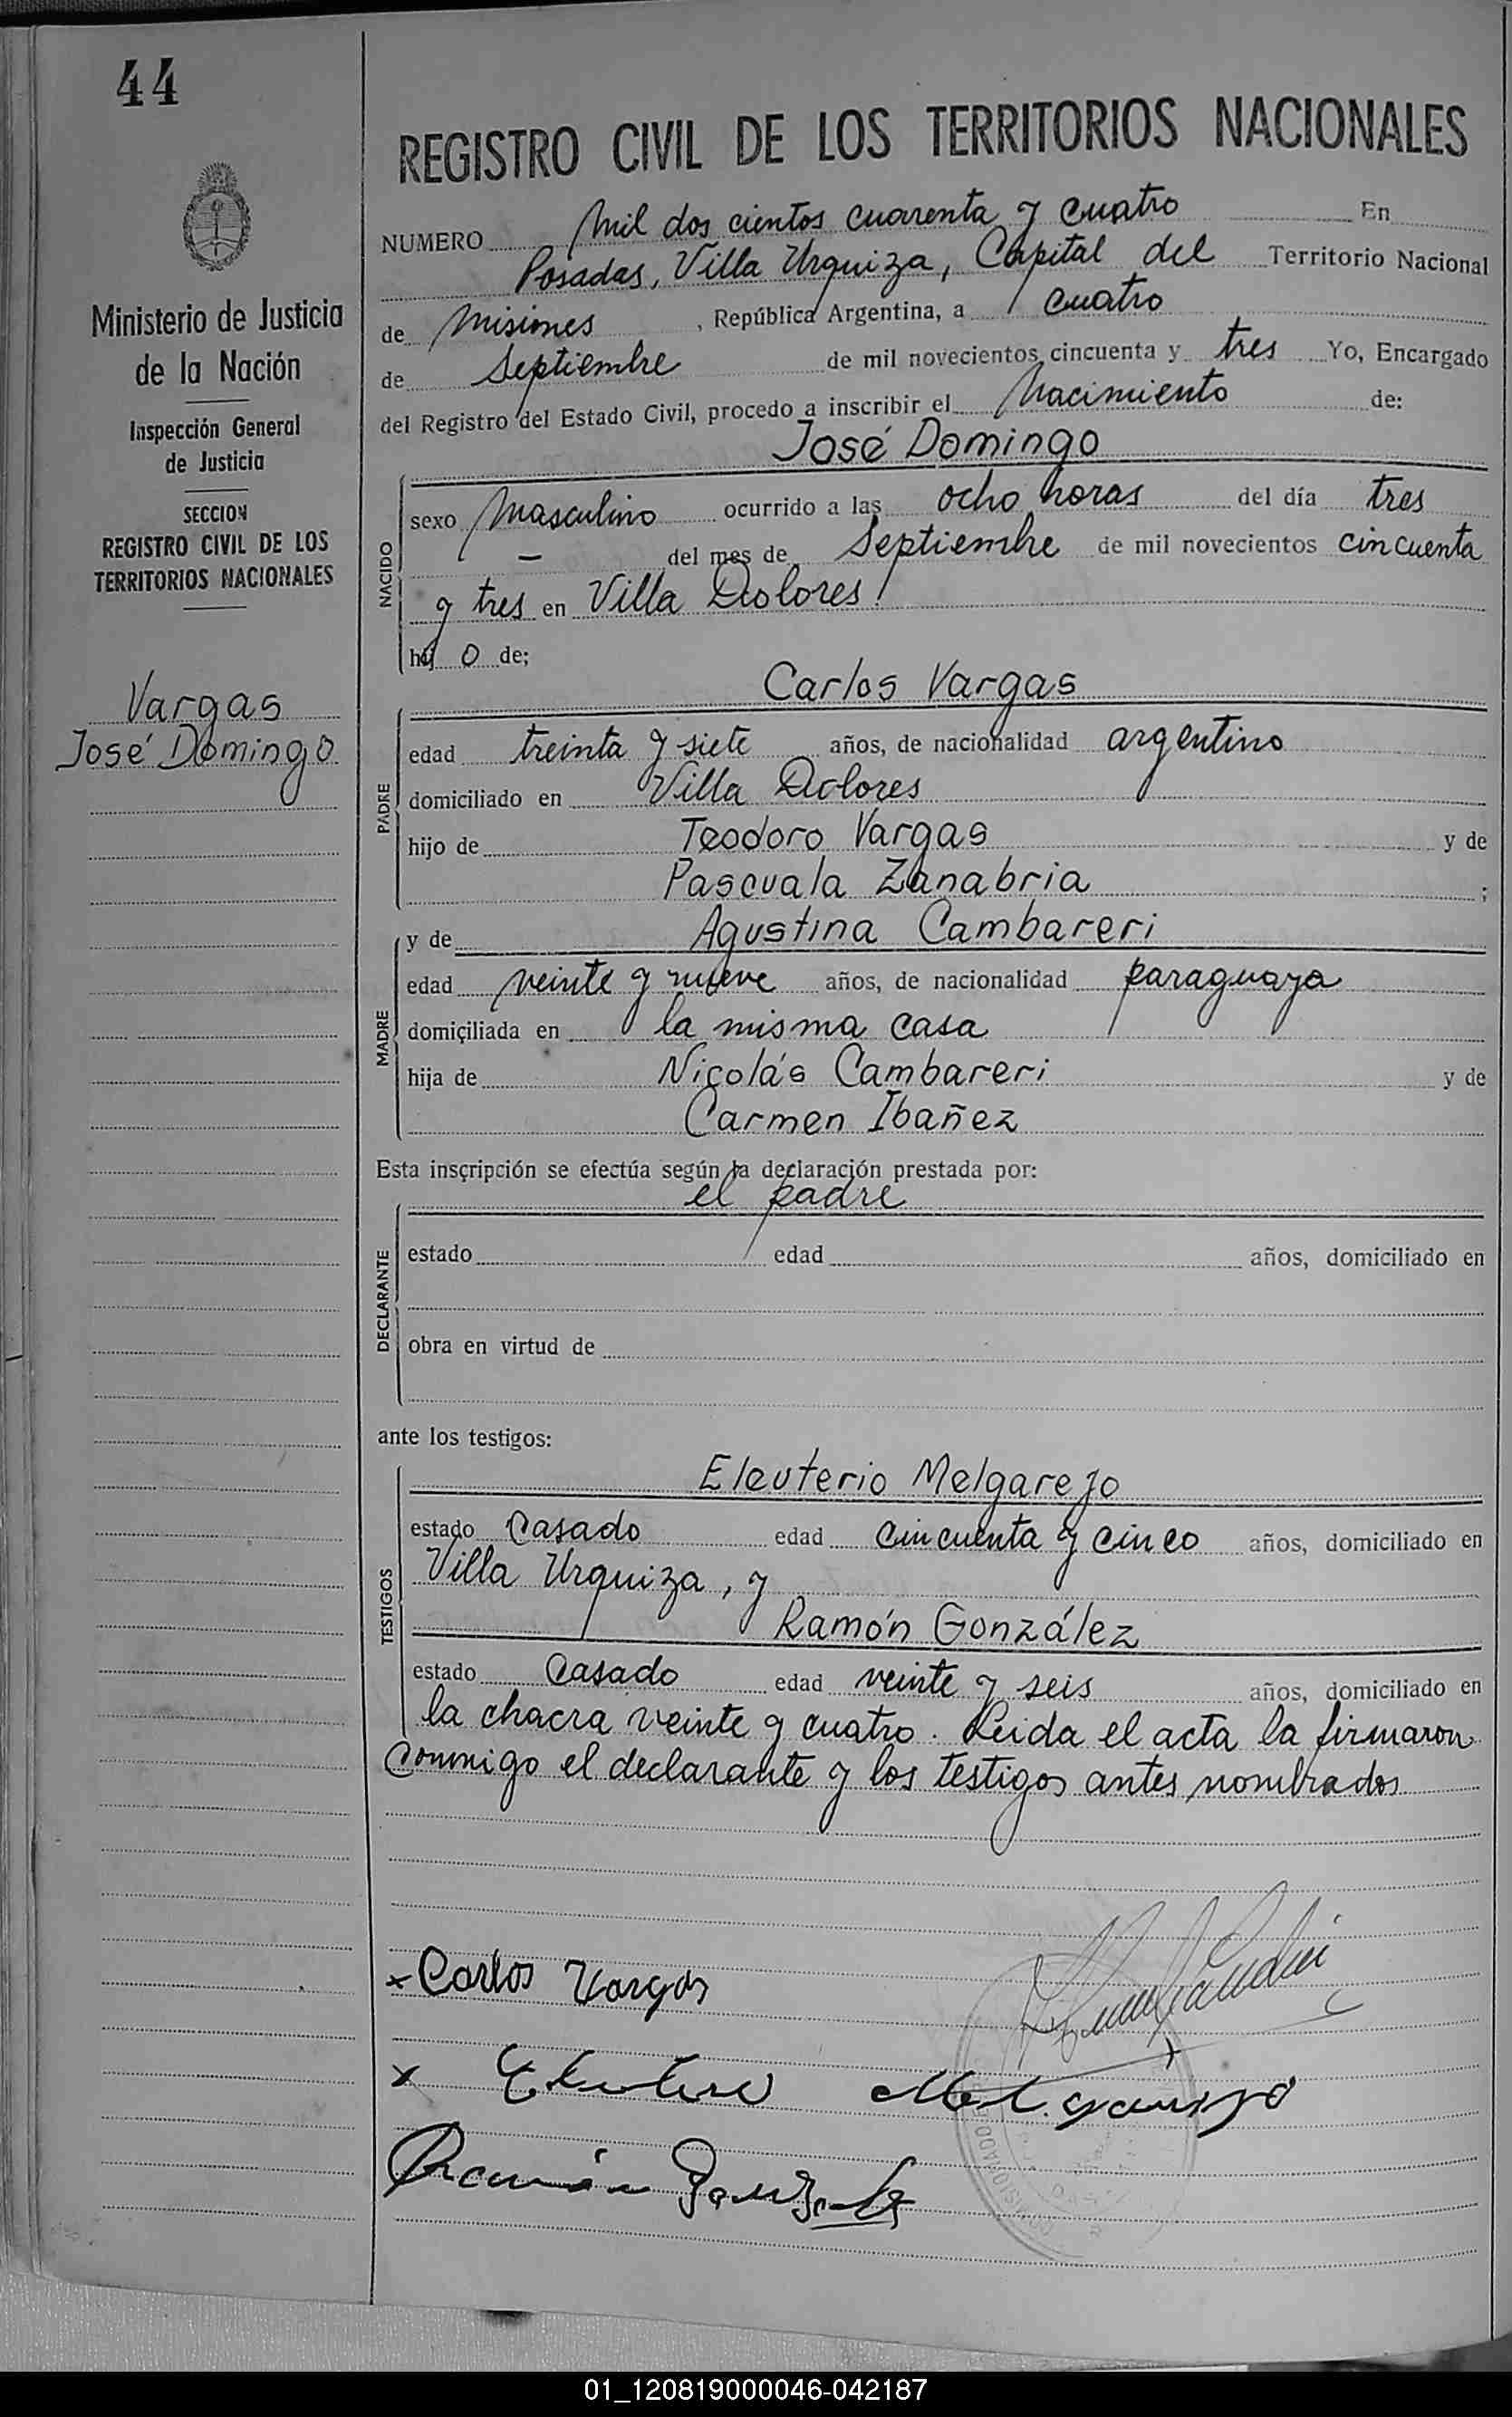 44
REGISTRO CIVIL DE LOS TERRITORIOS NACIONALES
NUMERO Mil dos cientos cuarenta y cuatro En
Posadas, Villa Urquiza, Capital del Territorio Nacional
de Misiones, República Argentina, a cuatro
de Septiembre de mil novecientos cincuenta y tres Yo, Encargado
del Registro del Estado Civil, procedo a inscribir el Nacimiento de:
José Domingo
Ministerio de Justicia
de la Nación
Inspección General
de Justicia
SECCION
REGISTRO CIVIL DE LOS
TERRITORIOS NACIONALES
Vargas
José Domingo
NACIDO
sexo Masculino ocurrido a las ocho horas del día tres
— del mes de Septiembre de mil novecientos cincuenta
y tres en Villa Dolores
hijo de;
Carlos Vargas
PADRE
edad treinta y siete años, de nacionalidad argentino
domiciliado en Villa Dolores
hijo de Teodoro Vargas y de
Pascuala Zanabria ;
MADRE
y de Agustina Cambareri
edad veinte y nueve años, de nacionalidad paraguaya
domiciliada en la misma casa
hija de Nicolás Cambareri y de
Carmen Ibañez
Esta inscripción se efectúa según la declaración prestada por:
el padre
DECLARANTE
estado edad años, domiciliado en
obra en virtud de
ante los testigos:
Eleuterio Melgarejo
TESTIGOS
estado Casado edad cincuenta y cinco años, domiciliado en
Villa Urquiza, y
Ramón González
estado Casado edad veinte y seis años, domiciliado en
la chacra veinte y cuatro. Leida el acta la firmaron
conmigo el declarante y los testigos antes nombrados
x Carlos Vargas
x Eleuterio Melgarejo
Ramón González
01_120819000046-042187